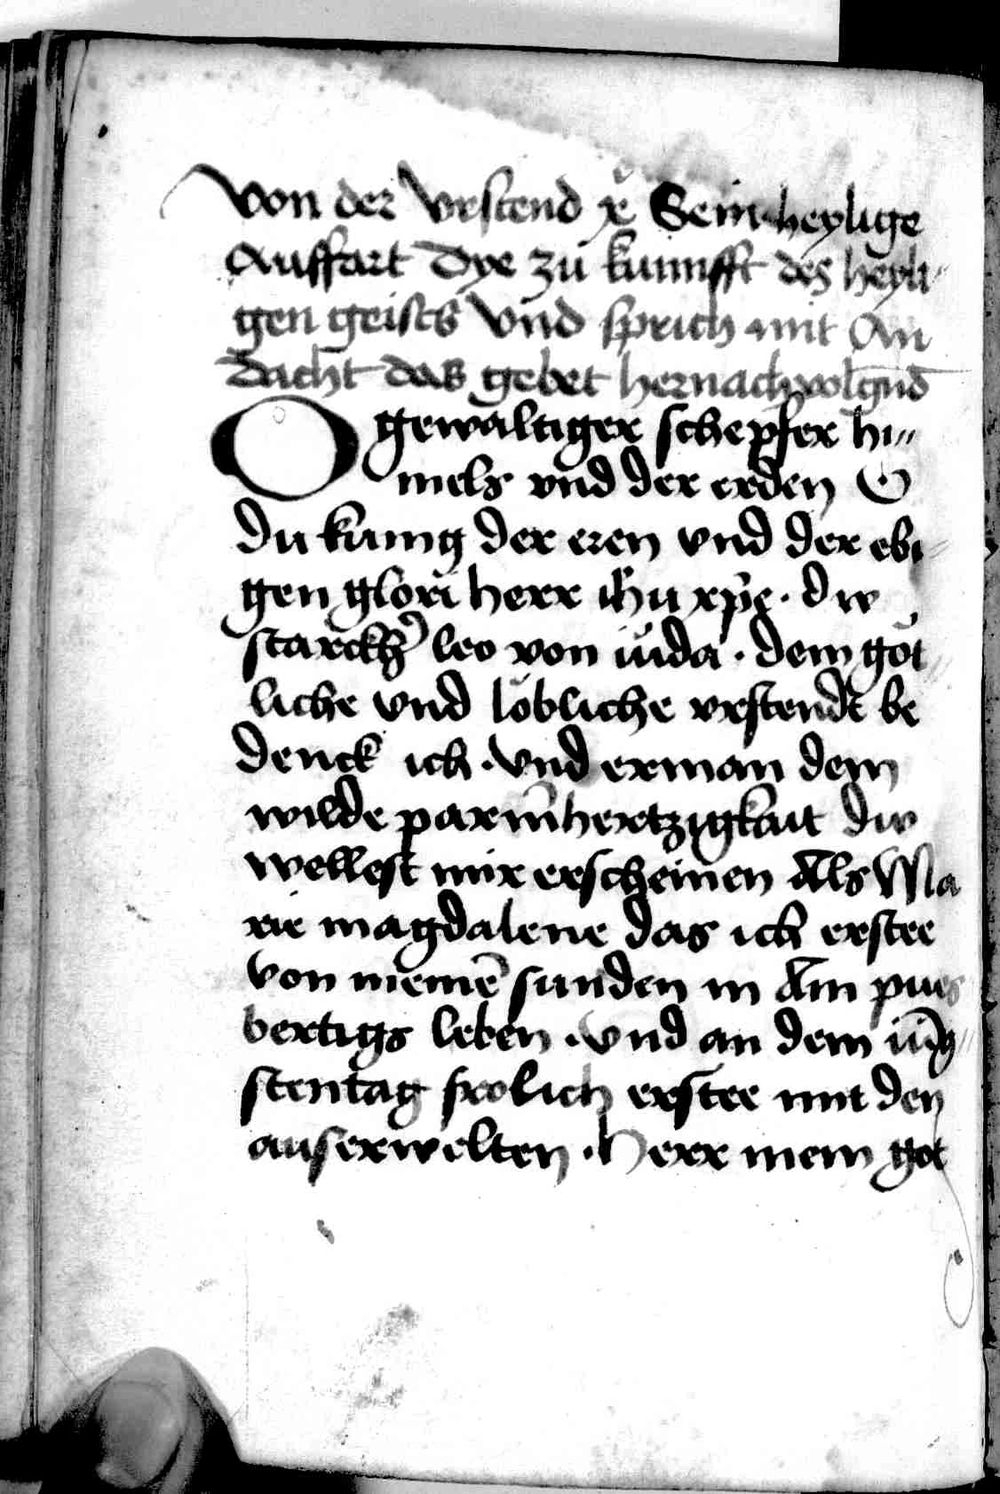 Von der Vrstend xp̄i Sein heylige
Auffart Dye zu kunnfft des heyli„
gen geists Vnd sprich mit An
Dacht das gebet hernachvolgn̄d
O gewaltiger schepfer hi„
mels vnd der erden O
du kunig der eren vnd der ebi„
gen glori herr ih̄u xp̄e · dw
starckħ leo von iuda · dein göt„
liche vnd löbliche vrstendt be
denck ich · Vnd erman dein
wilde parm̄hertzigkait dw
wellest mir erscheinen Als Ma
rie magdalene das ich erstee
von meinē sunden in Ain pues
bertigs leben · vnd an dem iūg„
stentag frolich erstee mit den
auserwelten · Herr mein got